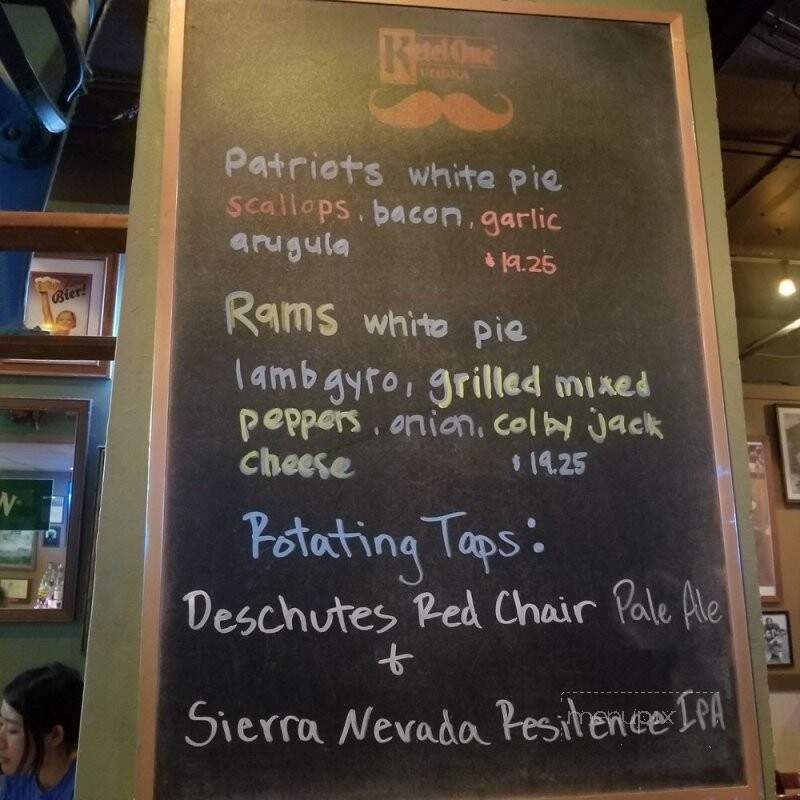 Ketel One
VODKA
Patriots white pie
scallops, bacon, garlic
arugula
$19.25
Rams white pie
lamb gyro, grilled mixed
peppers, onion, colby jack
cheese $19.25
Rotating Taps:
Deschutes Red Chair Pale Ale
+
Sierra Nevada Resilience IPA
menupix
Bier!
W